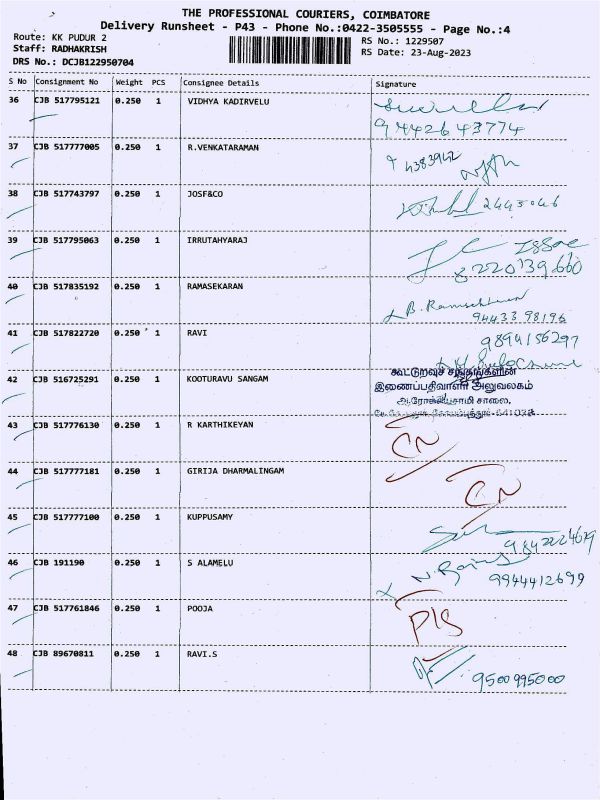 THE PROFESSIONAL COURIERS, COIMBATORE
Delivery Runsheet - P43 - Phone No.:0422-3505555 - Page No.:4
Route: KK PUDUR 2
RS No.: 1229507
Staff: RADHAKRISH
RS Date: 23-Aug-2023
DRS No.: DCJB122950704
S No Consignment No Weight PCS Consignee Details Signature
36 CJB 517795121 0.250 1 VIDHYA KADIRVELU
9442643774
37 CJB 517777005 0.250 1 R.VENKATARAMAN
38 CJB 517743797 0.250 1 JOSF&CO 2445046
39 CJB 517795063 0.250 1 IRRUTAHYARAJ
8220139660
40 CJB 517835192 0.250 1 RAMASEKARAN
9443398196
41 CJB 517822720 0.250 1 RAVI 9894156297
42 CJB 516725291 0.250 1 KOOTURAVU SANGAM
கூட்டுறவுச் சங்கங்களின்
இணைப்பதிவாளர் அலுவலகம்
ஆ.ரோக்கியசாமி சாலை,
43 CJB 517776130 0.250 1 R KARTHIKEYAN CN
44 CJB 517777181 0.250 1 GIRIJA DHARMALINGAM CN
45 CJB 517777100 0.250 1 KUPPUSAMY
46 CJB 191190 0.250 1 S ALAMELU
9944412699
47 CJB 517761846 0.250 1 POOJA P/S
48 CJB 89670811 0.250 1 RAVI.S
9500995000